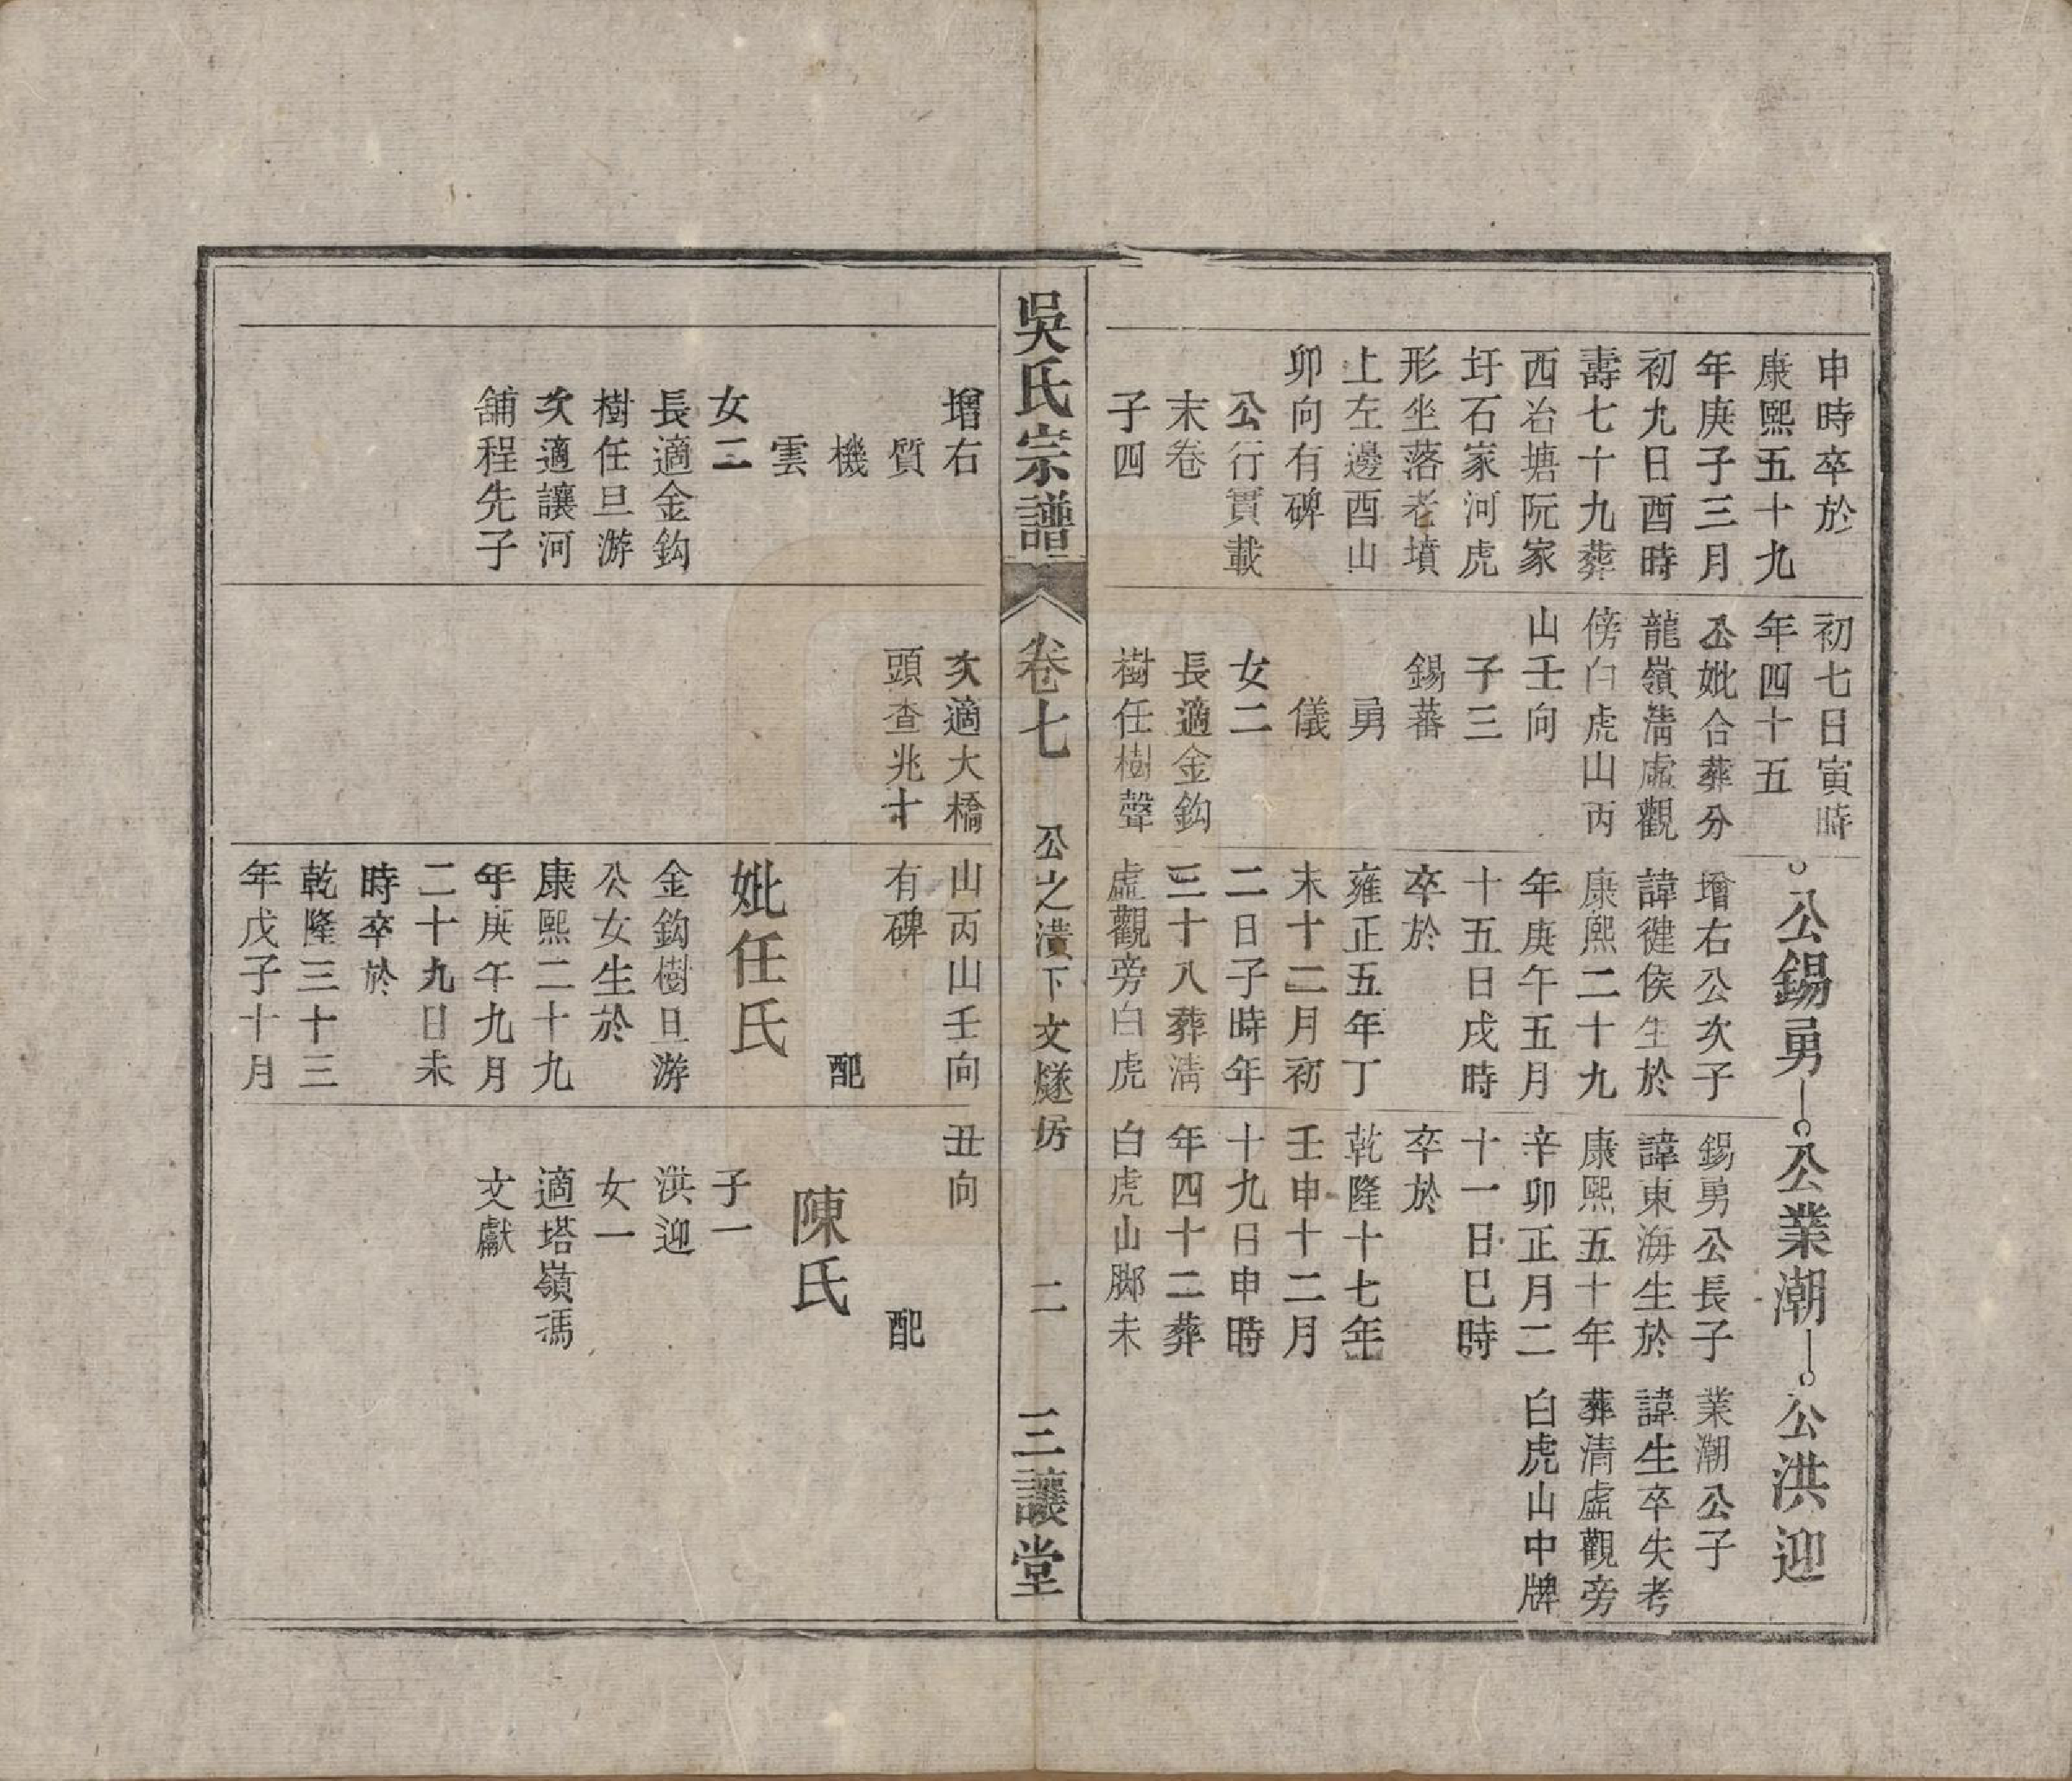 申時卒於
康熙五十九
年庚子三月
初九日酉時
壽七十九葬
西冶塘阮家
圩石家河虎
形坐落老墳
上左邊酉山
卯向有碑
公行實載
末卷
子四
初七日寅時
年四十五
公妣合葬分
龍嶺清虛觀
傍白虎山丙
山壬向
子三
錫蕃
勇
儀
女二
長適金鈎
樹任樹聲
公錫勇
增右公次子
諱徤侯生於
康熙二十九
年庚午五月
十五日戌時
卒於
雍正五年丁
未十二月初
二日子時年
三十八葬清
虛觀旁白虎
公業潮
錫勇公長子
諱東海生於
康熙五十年
辛卯正月二
十一日巳時
卒於
乾隆十七年
壬申十二月
十九日申時
年四十二葬
白虎山脚未
公洪迎
業潮公子
諱生卒失考
葬清虛觀旁
白虎山中牌
吳氏宗譜
卷七
公之濆下文燧房
二
三讓堂
增右
質
機
雲
女二
長適金鈎
樹任旦游
次適讓河
舖程先子
次適大橋
頭查兆十
山丙山壬向
有碑
配
妣任氏
金鈎樹旦游
公女生於
康熙二十九
年庚午九月
二十九日未
時卒於
乾隆三十三
年戊子十月
丑向
配
陳氏
子一
洪迎
女一
適塔嶺馮
文獻